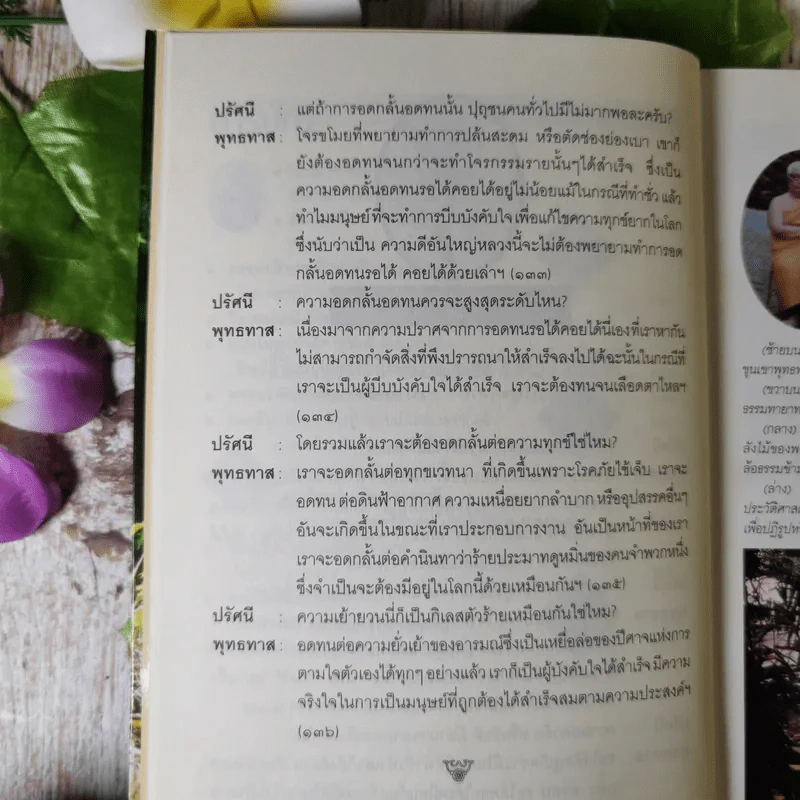 ปรัศนี : แต่ถ้าการอดกลั้นอดทนนั้น ปุถุชนคนทั่วไปมีไม่มากพอละครับ?
พุทธทาส : โจรขโมยที่พยายามทำการปล้นสะดม หรือตัดช่องย่องเบา เขาก็
ยังต้องอดทนจนกว่าจะทำโจรกรรมรายนั้นๆได้สำเร็จ ซึ่งเป็น
ความอดกลั้นอดทนรอได้คอยได้อยู่ไม่น้อยแม้ในกรณีที่ทำชั่ว แล้ว
ทำไมมนุษย์ที่จะทำการบีบบังคับใจ เพื่อแก้ไขความทุกข์ยากในโลก
ซึ่งนับว่าเป็น ความดีอันใหญ่หลวงนี้จะไม่ต้องพยายามทำการอด
กลั้นอดทนรอได้ คอยได้ด้วยเล่าฯ (๑๓๓)
ปรัศนี : ความอดกลั้นอดทนควรจะสูงสุดระดับไหน?
พุทธทาส : เนื่องมาจากความปราศจากการอดทนรอได้คอยได้นี่เองที่เราหากัน
ไม่สามารถกำจัดสิ่งที่พึงปรารถนาให้สำเร็จลงไปได้ฉะนั้นในกรณีที่
เราจะเป็นผู้บีบบังคับใจได้สำเร็จ เราจะต้องทนจนเลือดตาไหลฯ
(๑๓๔)
ปรัศนี : โดยรวมแล้วเราจะต้องอดกลั้นต่อความทุกข์ใช่ไหม?
พุทธทาส : เราจะอดกลั้นต่อทุกขเวทนา ที่เกิดขึ้นเพราะโรคภัยไข้เจ็บ เราจะ
อดทน ต่อดินฟ้าอากาศ ความเหนื่อยยากลำบาก หรืออุปสรรคอื่นๆ
อันจะเกิดขึ้นในขณะที่เราประกอบการงาน อันเป็นหน้าที่ของเรา
เราจะอดกลั้นต่อคำนินทาว่าร้ายประมาทดูหมิ่นของคนจำพวกหนึ่ง
ซึ่งจำเป็นจะต้องมีอยู่ในโลกนี้ด้วยเหมือนกันฯ (๑๓๕)
ปรัศนี : ความเย้ายวนนี่ก็เป็นกิเลสตัวร้ายเหมือนกันใช่ไหม?
พุทธทาส : อดทนต่อความยั่วเย้าของอารมณ์ซึ่งเป็นเหยื่อล่อของปีศาจแห่งการ
ตามใจตัวเองได้ทุกๆ อย่างแล้ว เราก็เป็นผู้บังคับใจได้สำเร็จ มีความ
จริงใจในการเป็นมนุษย์ที่ถูกต้องได้สำเร็จสมตามความประสงค์ฯ
(๑๓๖)
(ซ้ายบน
ขุนเขาพุทธท
(ขวาบน
ธรรมทายาท
(กลาง)
ลังไม้ของพ
ล้อธรรมข้าม
(ล่าง)
ประวัติศาส
เพื่อปฏิรูปท